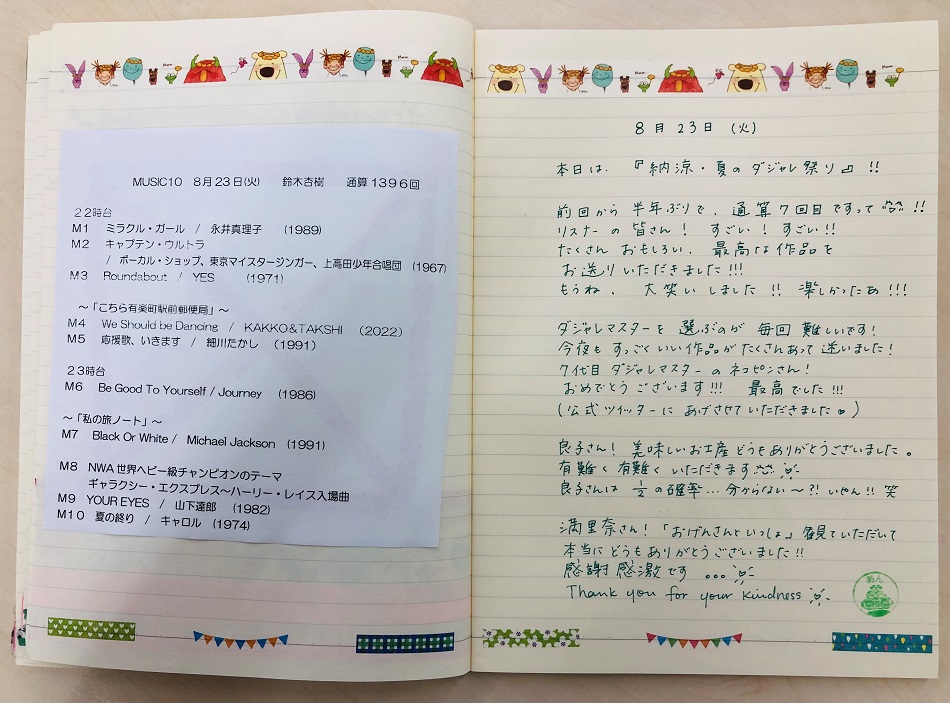 MUSIC10 8月23日(火) 鈴木杏樹 通算1396回
22時台
M1 ミラクル・ガール / 永井真理子 (1989)
M2 キャプテン・ウルトラ
/ ボーカル・ショップ、東京マイスタージンガー、上高田少年合唱団 (1967)
M3 Roundabout / YES (1971)
～「こちら有楽町駅前郵便局」～
M4 We Should be Dancing / KAKKO&TAKSHI (2022)
M5 応援歌、いきます / 細川たかし (1991)
23時台
M6 Be Good To Yourself / Journey (1986)
～「私の旅ノート」～
M7 Black Or White / Michael Jackson (1991)
M8 NWA世界ヘビー級チャンピオンのテーマ
ギャラクシー・エクスプレス～ハーリー・レイス入場曲
M9 YOUR EYES / 山下達郎 (1982)
M10 夏の終り / キャロル (1974)
8月23日 (火)
本日は、『納涼・夏のダジャレ祭り』!!
前回から 半年ぶりで、通算7回目ですって !!
リスナーの皆さん! すごい! すごい!!
たくさん おもしろい、最高な作品を
お送りいただきました!!!
もうね、大笑いしました!! 楽しかったぁ!!!
ダジャレマスターを 選ぶのが 毎回 難しいです!
今夜も すっごくいい作品が たくさんあって 迷いました!
7代目 ダジャレマスター の ネコピンさん!
おめでとう ございます!!! 最高でした!!!
(公式ツイッターに あげさせていただきました)
良子さん! 美味しいお土産 どうもありがとうございました。
有難く 有難く いただきます
良子さんは 1/2の確率… 分からない～?! いやん!! 笑
満里奈さん! 「おげんさんといっしょ」観ていただいて
本当に どうもありがとうございました!!
感謝 感激です …
Thank you for your kindness
あん